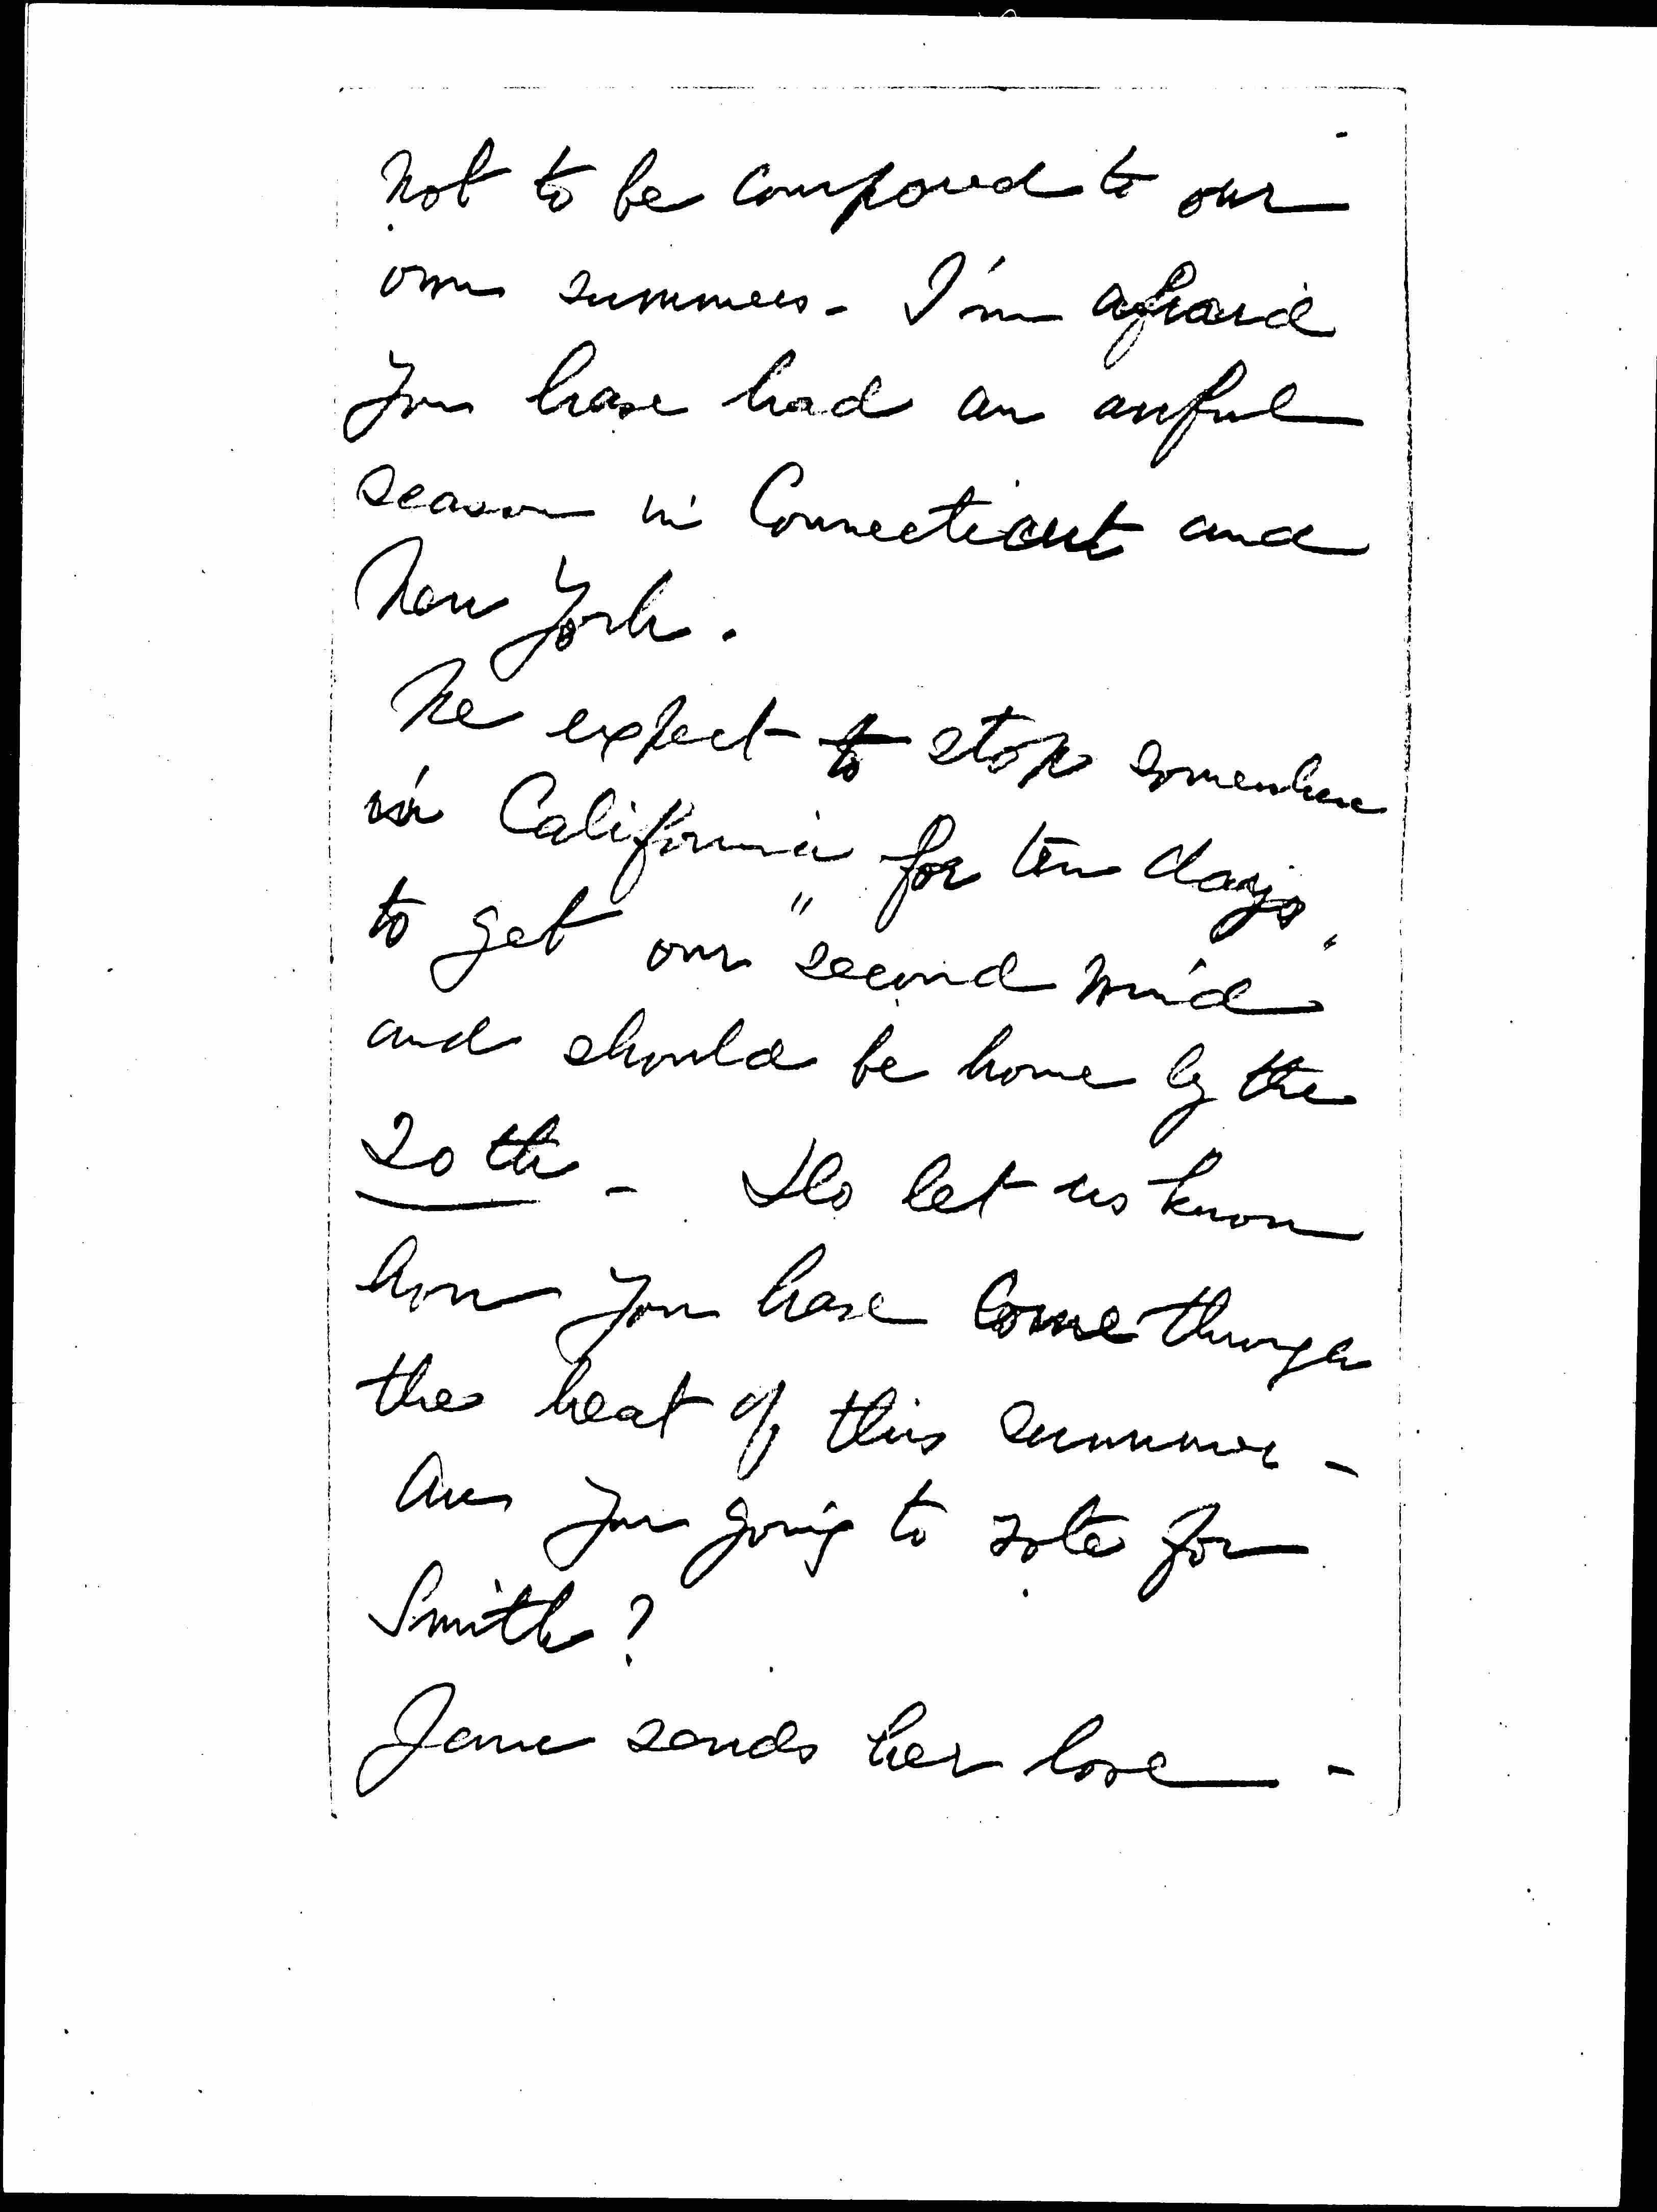 not to be compared to our
own summers - I'm afraid
you have had an awful
season in Connecticut and
New York.
We expect to stop somewhere
in California for ten days
to get our "second wind"
and should be home by the
20th - Do let us know
how you have come through
the heat of this summer -
Are you going to vote for
Smith?
Jane sends her love -